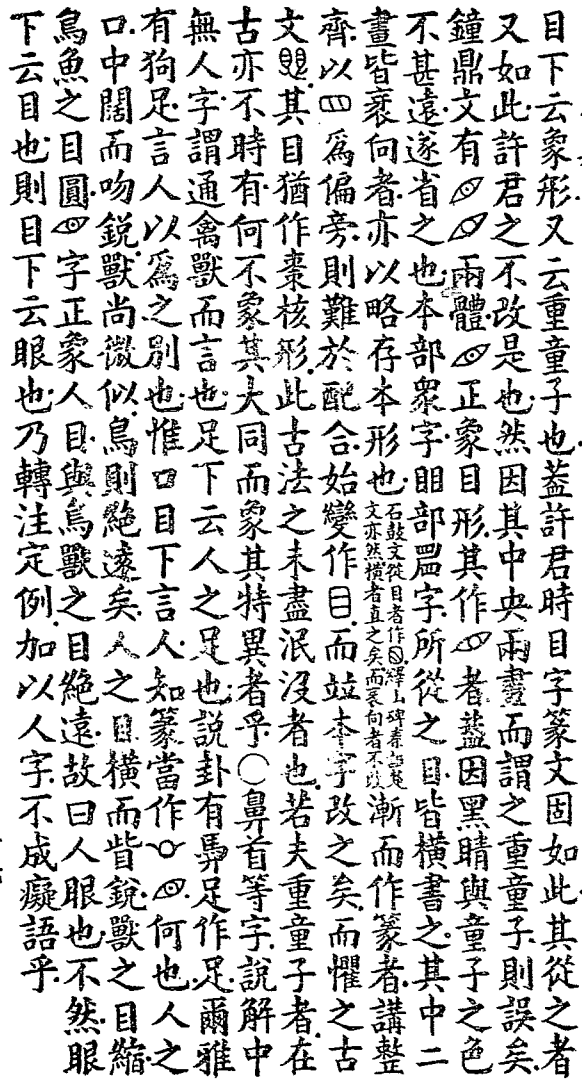 目下云象形又云重童子也葢許君時目字篆文固如此其從之者
又如此許君之不改是也然因其中央兩畫而謂之重童子則誤矣
鐘鼎文有兩體正象目形其作者葢因黑睛與童子之色
不甚遠遂省之也本部眾字䀠部䁂字所從之目皆橫書之其中二
畫皆衺向者亦以略存本形也石鼓文從目者作繹山碑秦詛楚文亦然橫者直之矣而衺向者不改漸而作篆者講整
齊以罒爲偏旁則難於配合始變作目而竝本字改之矣而懼之古
文其目猶作棗核形此古法之未盡泯沒者也若夫重童子者在
古亦不時有何不象其大同而象其特異者乎〇鼻首等字說解中
無人字謂通禽獸而言也足下云人之足也說卦有馵足作足爾雅
有狗足言人以爲之別也惟口目下言人知篆當作何也人之
口中闊而吻銳獸尚微似鳥則絶遠矣人之目橫而眥銳獸之目縮
鳥魚之目圓字正象人目與鳥獸之目絶遠故曰人眼也不然眼
下云目也則目下云眼也乃轉注定例加以人字不成癡語乎